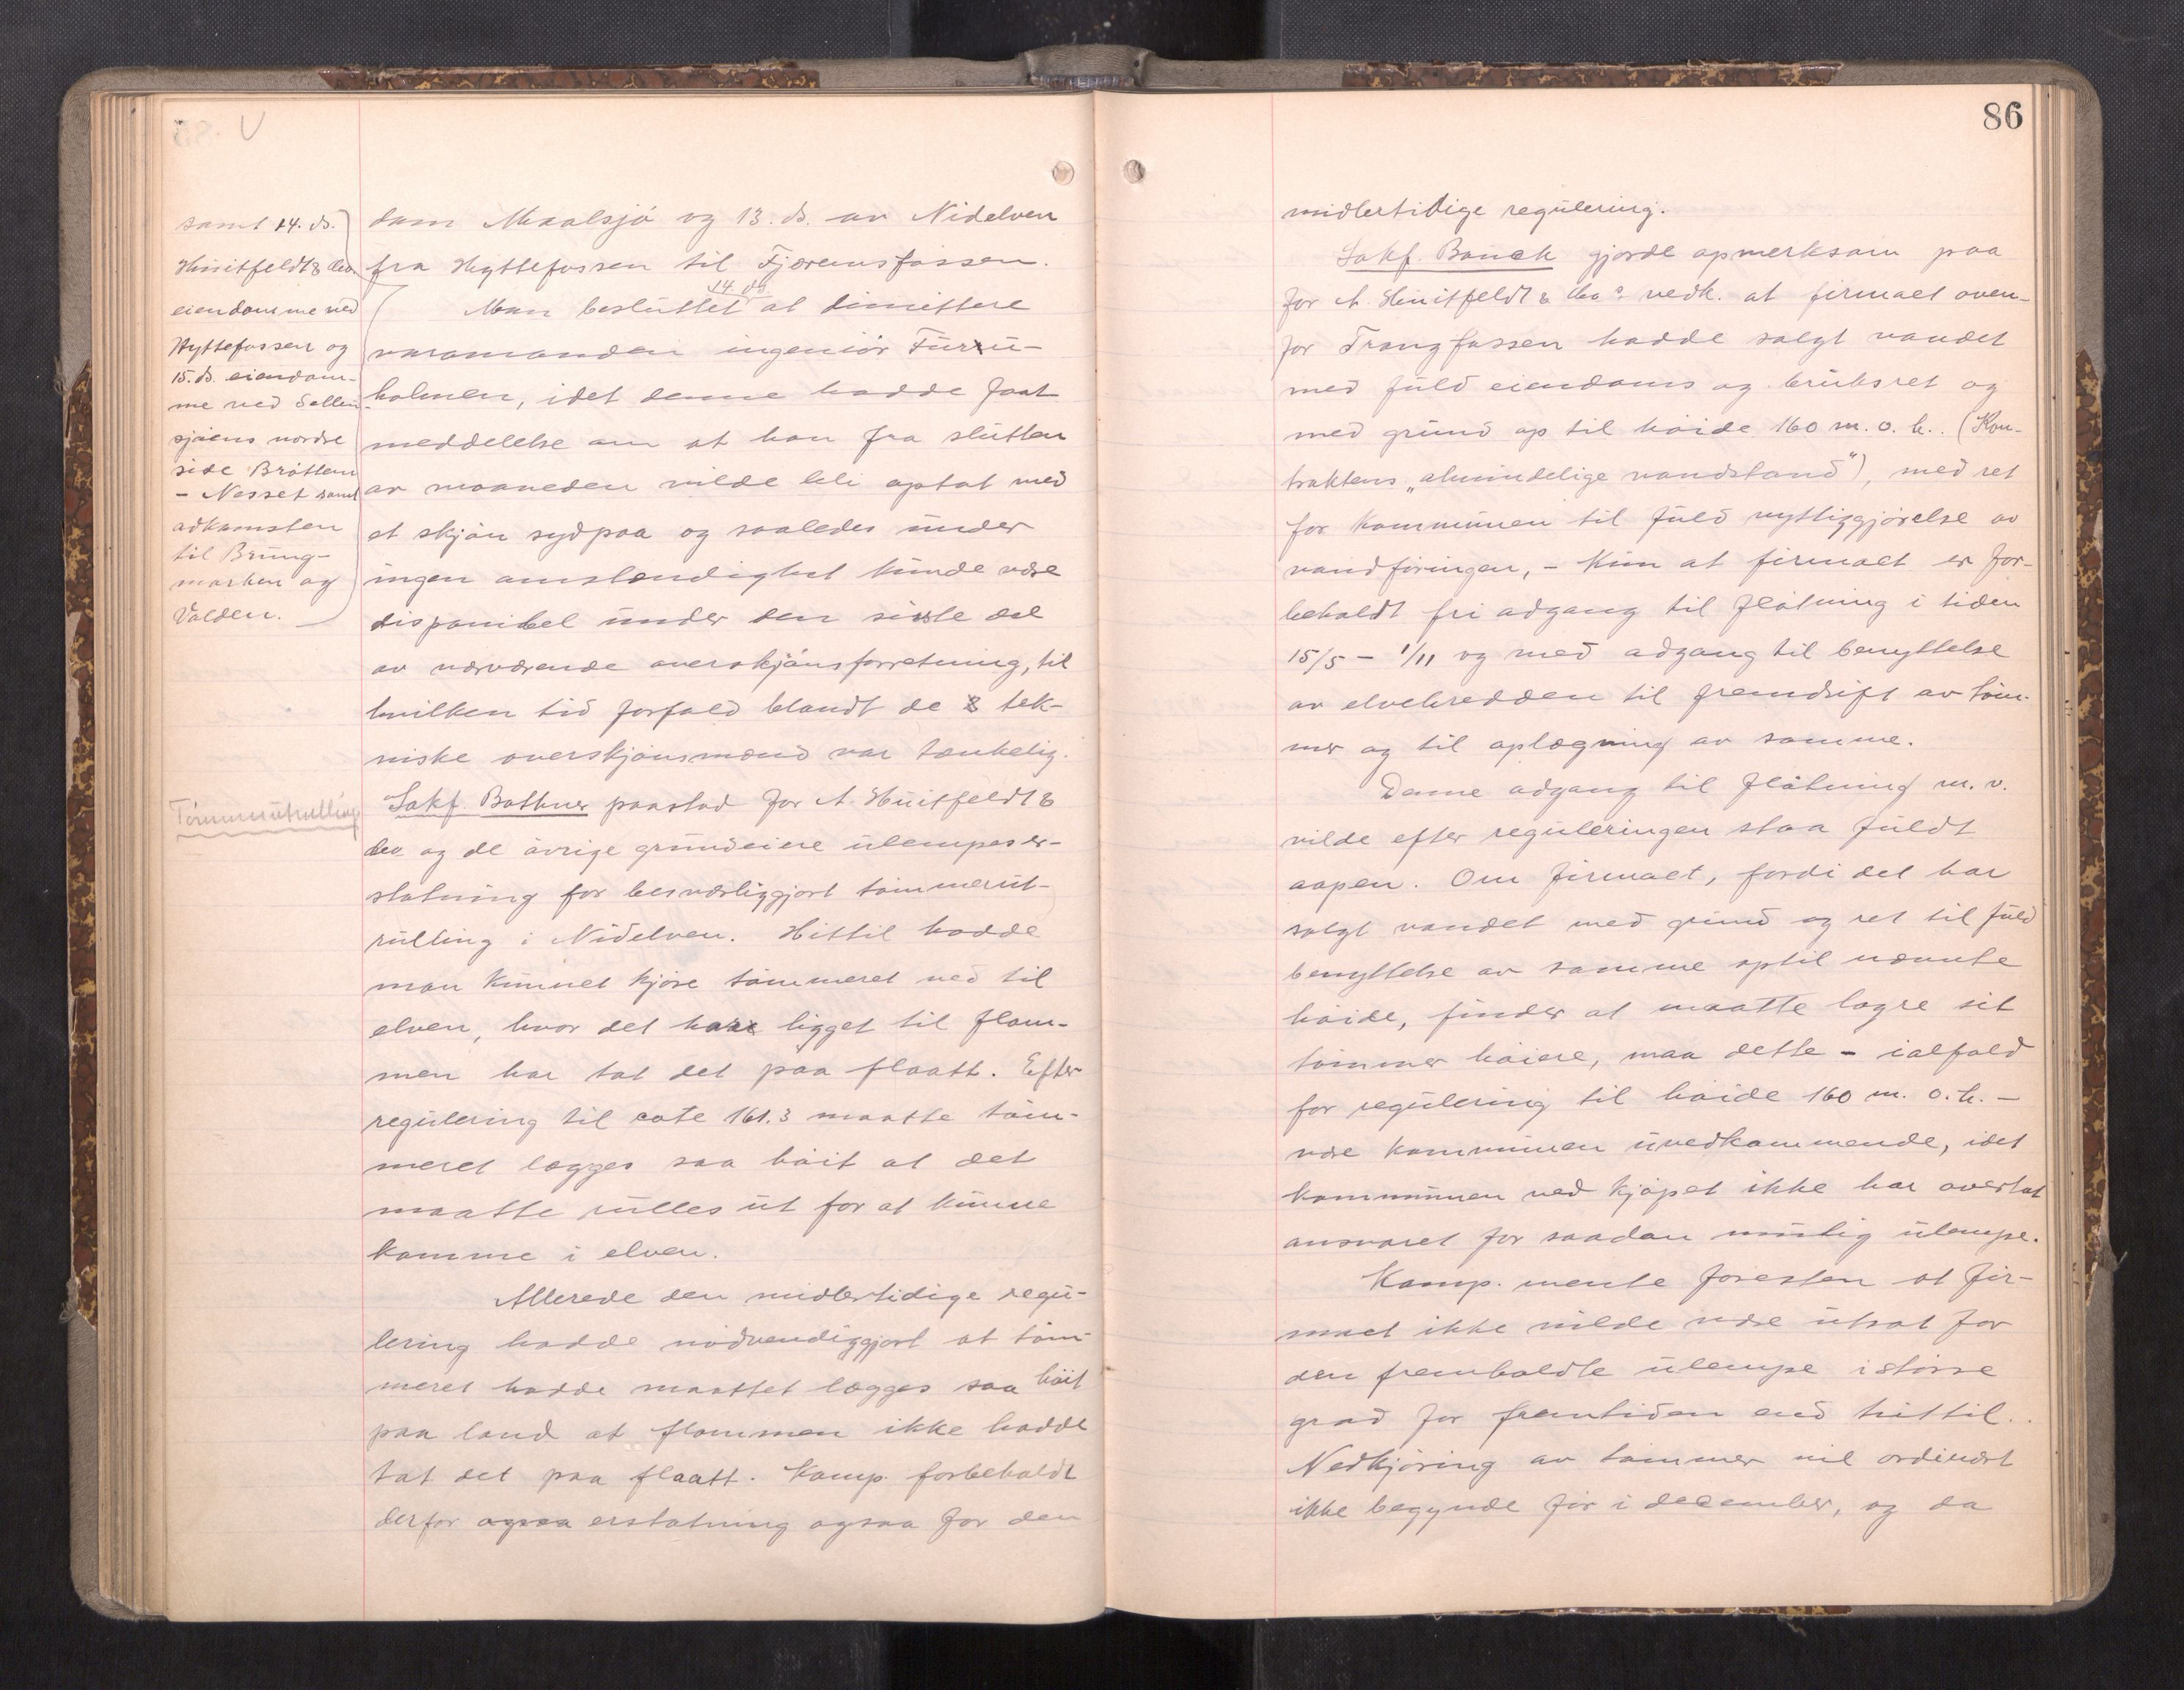 samt 14. ds.
Huitfeldt & Co.
eiendomme ved
Hyttefossen og
15. ds. eiendom-
me ved Selbu-
sjøens nordre
side Bråttem
- Nesset samt
adkomsten
til Brung-
marken og
Valden.
Tømmerutrulling
dam Maalsjø og 13. ds. av Nidelven
fra Hyttefossen til Fjæremsfossen.
Man besluttet 14. ds. at dimittere
varamanden ingeniør Furu-
holmen, idet denne hadde faat
meddelelse om at han fra slutten
av maaneden vilde bli optat med
et skjøn sydpaa og saaledes under
ingen omstendighet kunde være
disponibel under den siste del
av nærværende overskjønsforretning, til
hvilken tid forfald blandt de tek-
niske overskjønsmænd var tænkelig.
Sakf. Bothner paastod for A. Huitfeldt &
Co og de øvrige grundeiere ulempeser-
statning for besværliggjort tømmerut-
rulling i Nidelven. Hittil hadde
man kunnet kjøre tømmeret ned til
elven, hvor det har ligget til flom-
men har tat det paa flaatt. Efter
regulering til cote 161.3 maatte tøm-
meret lægges saa høit at det
maatte rulles ut for at kunne
komme i elven.
Allerede den midlertidige regu-
lering hadde nødvendiggjort at tøm-
meret hadde maattet lægges saa høit
paa land at flommen ikke hadde
tat det paa flaatt. Komp. forbeholdt
derfor ogsaa erstatning ogsaa for den
86
midlertidige regulering.
Sakf. Bauck gjorde opmerksom paa
for A. Huitfeldt & Co's vedk. at firmaet oven-
for Trangfossen hadde solgt vandet
med fuld eiendoms og bruksret og
med grund op til høide 160 m. o. h.. (Kon-
traktens "almindelige vandstand"), med ret
for kommunen til fuld nyttiggjørelse av
vandføringen, - Kun at firmaet er for-
beholdt fri adgang til fløtning i tiden
15/5 - 1/11 og med adgang til benyttelse
av elvebredden til fremdrift av tøm-
mer og til oplægning av samme.
Denne adgang til fløtning m. v.
vilde efter reguleringen staa fuldt
aapen. Om firmaet, fordi det har
solgt vandet med grund og ret til fuld
benyttelse av samme optil nævnte
høide, finder at maatte lagre sit
tømmer høiere, maa dette - ialfald
for regulering til høide 160 m. o. h. -
være kommunen uvedkommende, idet
kommunen ved kjøpet ikke har overtat
ansvaret for saadan mulig ulempe.
Komp. mente foresten at fir-
maet ikke vilde være utsat for
den fremholdte ulempe i større
grad for fremtiden end hittil.
Nedkjøring av tømmer vil ordinært
ikke begynde før i december, og da